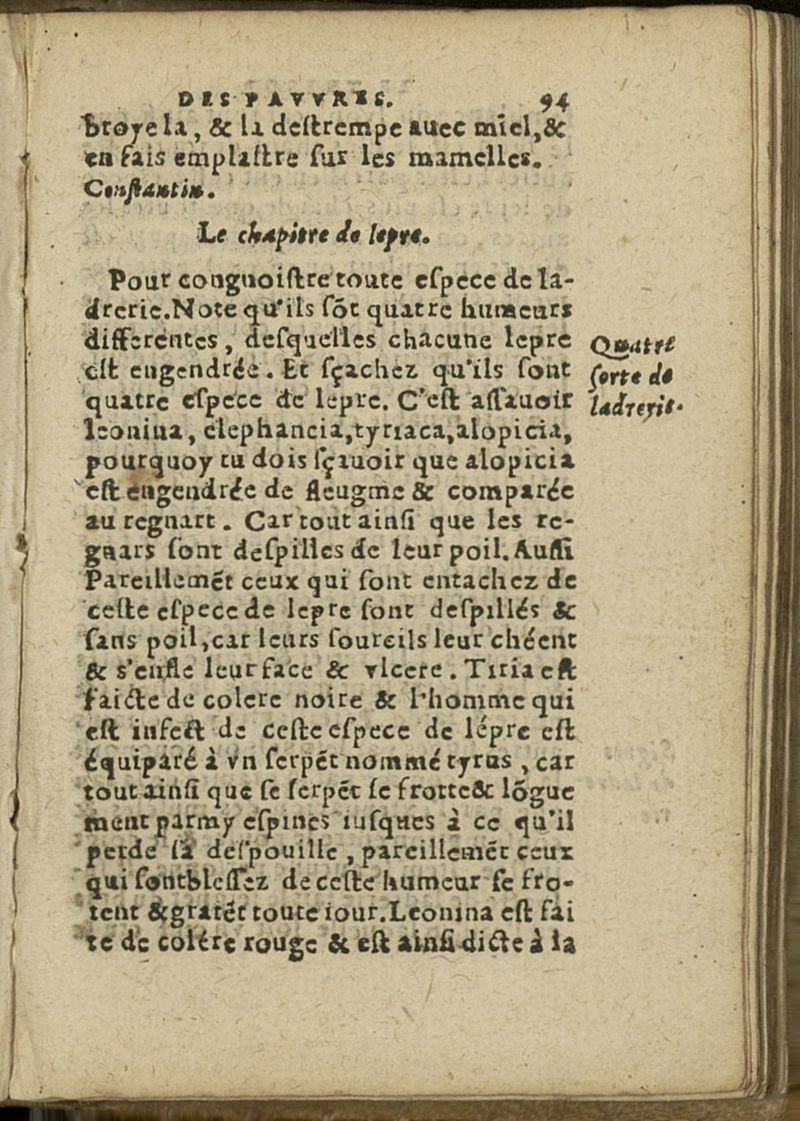 DES PAVVRES. 94
broyela, & la deſtrempe auec miel,&
en fais emplaſtre ſur les mamelles.
Conſtantin.
Le chapitre de lepre.
Pour congnoiſtre toute eſpece de la-
drerie. Note qu'ils ſõt quatre humeurs
differentes, deſquelles chacune lepre
eſt engendrée. Et ſçachez qu'ils ſont
quatre eſpece de lepre. C'eſt aſſauoir
leonina, elephancia,tyriaca,alopicia,
pourquoy tu dois ſçauoir que alopicia
eſt engendrée de fleugme & comparée
au regnart. Car tout ainſi que les re-
gnars ſont deſpilles de leur poil. Auſſi
Pareillemẽt ceux qui ſont entachez de
ceſte eſpece de lepre ſont deſpillés &
ſans poil,car leurs ſourcils leur chéent
& s'enfle leur face & vlcere. Tiria eſt
faicte de colere noire & l'homme qui
eſt infect de ceſte eſpece de lépre eſt
équiparé à vn ſerpẽt nommé tyrus, car
tout ainſi que ſe ſerpẽt ſe frotte& lõgue
ment parmy eſpines iuſques à ce qu'il
perde ſa deſpouille, pareillemẽt ceux
qui ſont bleſſez de ceſte humeur ſe fro-
tent & gratẽt toute iour. Leonina eſt fai
te de colére rouge & eſt ainſi dicte à la
Quatre
ſorte de
ladrerie.